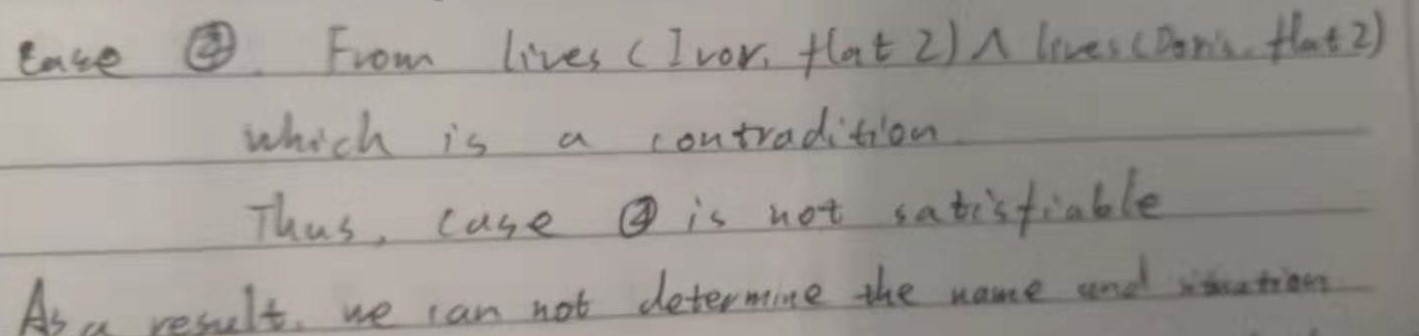 Case ④. From lives (Ivor, flat 2) ∧ lives (Doris, flat 2)
which is a contradition
Thus, case ④ is not satisfiable
As a result, we can not determine the name and